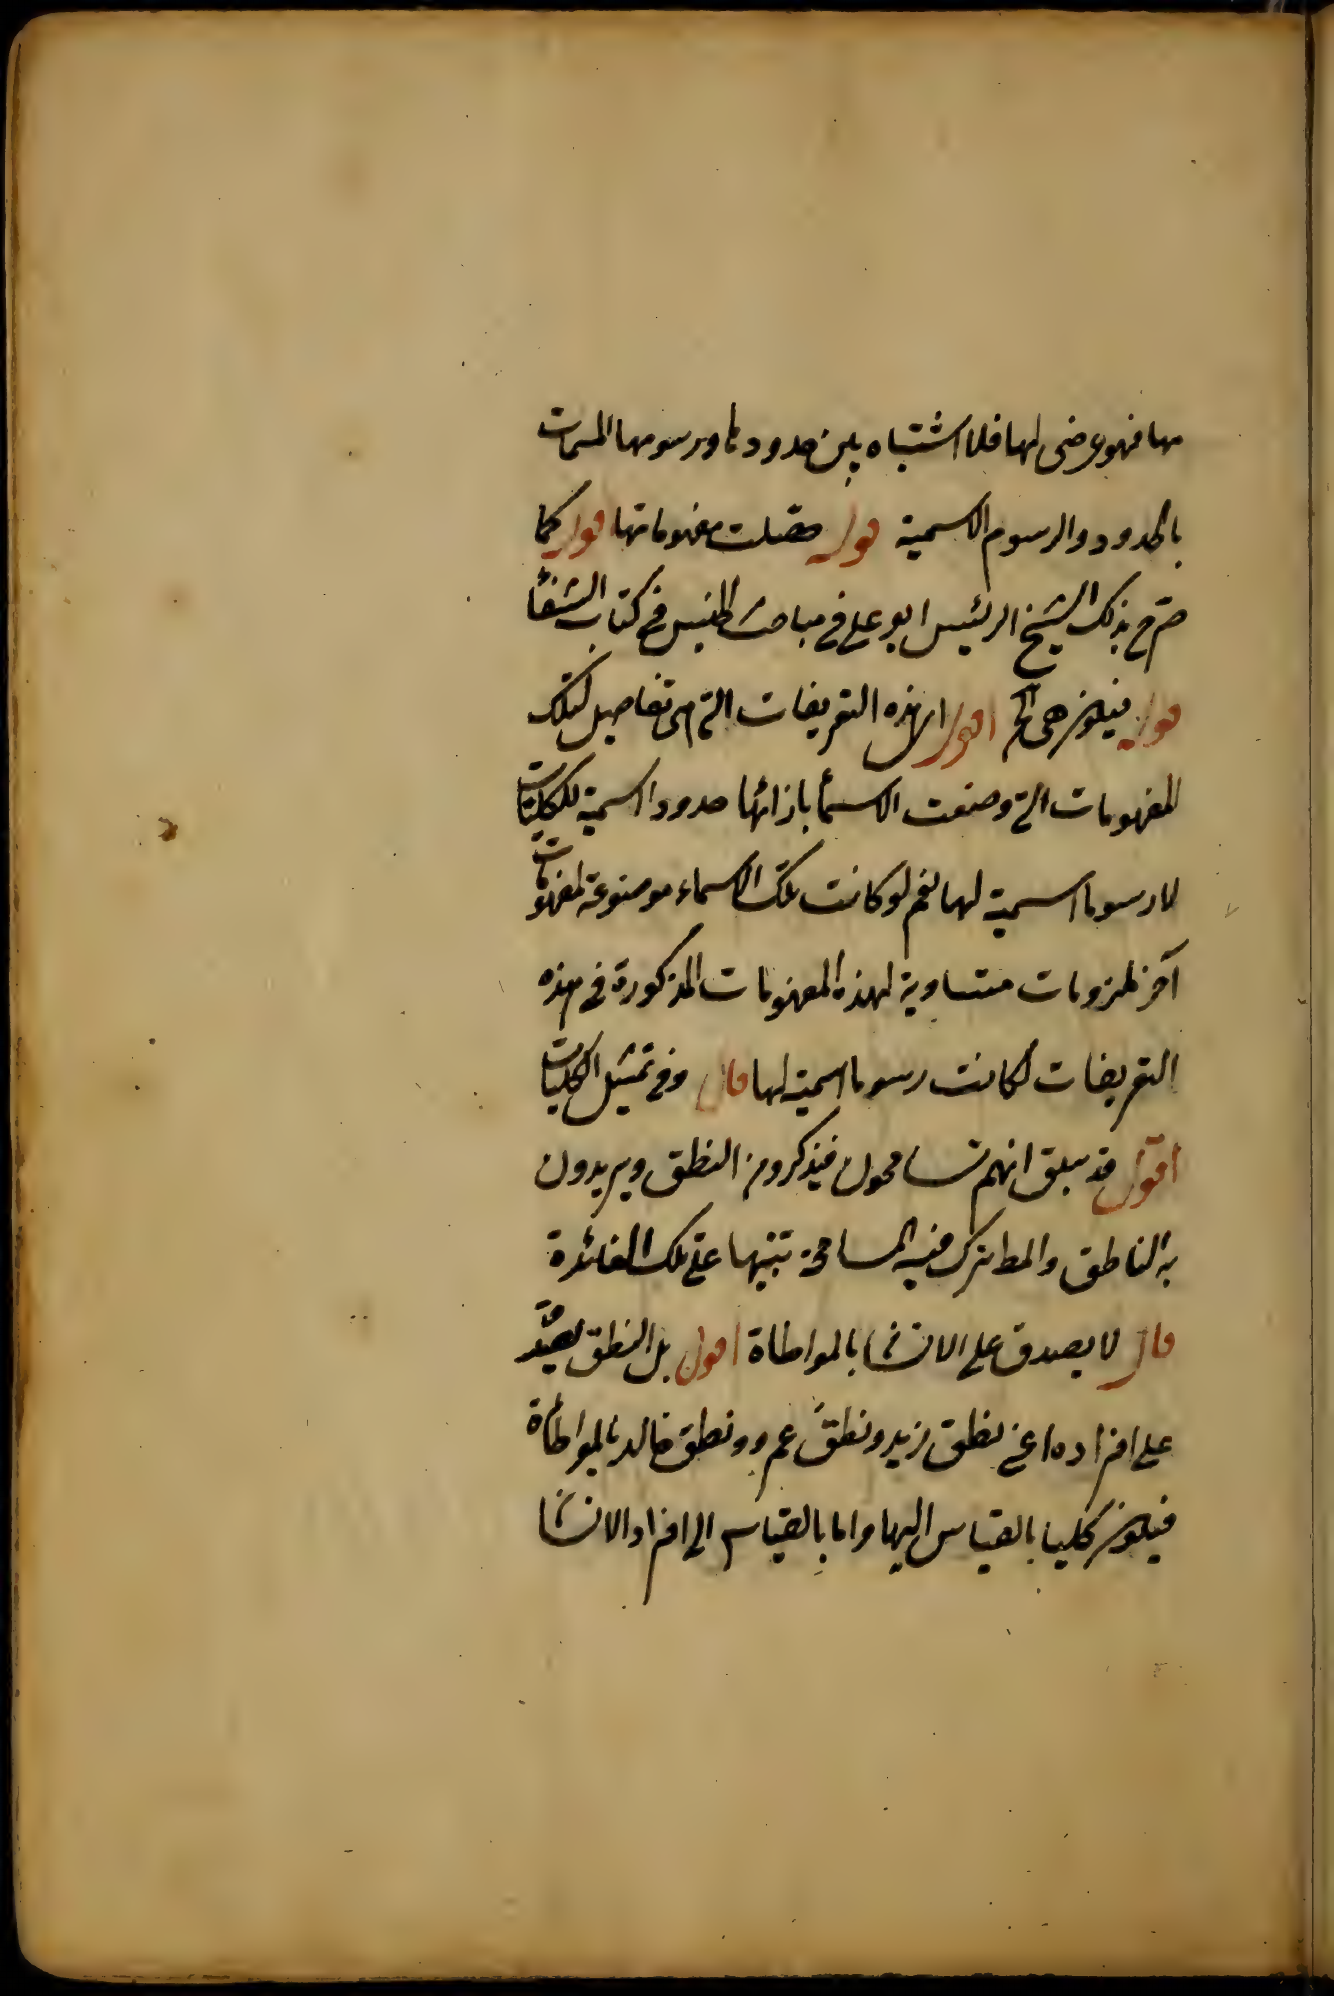 مها فهو عرضى لها فلا اشتباه بين حدودها ورسومها المسمات
بالحدود والرسوم الاسمية قوله حصلت مفهوماتها اقول كما
صرح بذلك الشيخ الرئيس ابو على فى مباحث الجنس فى كتاب الشفأ
قوله فيكون هى الخ اقول اى هذه التعريفات التى هى تفاصيل لتلك
المفهومات التى وضعت الاسمأ بازائها حدودا اسمية للكليات
لا رسوما اسمية لها نعم لو كانت تلك الاسماء موضوعة لمفهومات
آخر ملزومات متساوية لهذه المفهومات المذكورة فى هذه
التعريفات لكانت رسوما اسمية لها قال وفى تمثيل الكليات
اقول قد سبق انهم تسامحون فيذكرون النطق ويريدون
به الناطق والمط ترك فيه المسامحة تنبيها على تلك الفائدة
قال لا يصدق على الانسان بالمواطاة اقول بل النطق يصدق
على افراده اعنى نطق زيد ونطق عمرو ونطق خالد بالمواطأة
فيكون كليا بالقياس اليها واما بالقياس الى افراد الانسان